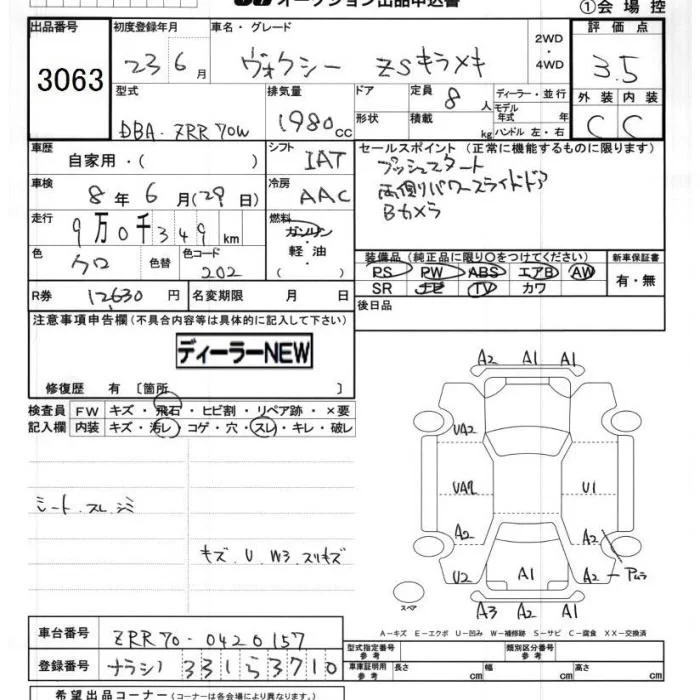 オークション出品申込書
①会場控
出品番号 初度登録年月 車名・グレード 評価点
3063 23 6月 ヴォクシー ZSキラメキ 2WD・4WD 3.5
型式 排気量 ドア 定員 8人 ディーラー・並行 外装 内装
DBA-ZRR70W 1980cc 形状 積載 kg モデル年式 年 ハンドル 左・右 C C
車歴 自家用・( ) シフト IAT セールスポイント(正常に機能するものに限ります)
車検 8年6月(29日) 冷房 AAC プッシュスタート
両側パワースライドドア
Bカメラ
走行 9万0千349km 燃料 ガソリン・軽油・( )
色 クロ 色替 色コード 202
装備品(純正品に限り○をつけてください) 新車保証書
PS PW ABS エアB AW 有・無
SR ナビ TV カワ
R券 12630円 名変期限 月 日 後日品
注意事項申告欄(不具合内容等は具体的に記入して下さい)
ディーラーNEW
修復歴 有 〔箇所 〕
検査員 FW キズ・飛石・ヒビ割・リペア跡・×要
記入欄 内装 キズ・汚レ・コゲ・穴・スレ・キレ・破レ
A2 A1 A1
UA2
UA2 U1
A2 A2
U2 A1 A2
A3 A2 A1
スペア
シート スレ シミ
キズ.U.W3.スリキズ
A-キズ E-エクボ U-凹み W-補修跡 S-サビ C-腐食 XX-交換済
車台番号 ZRR70-0420157
型式指定番号 参考 類別区分番号 参考
登録番号 ナラシ 331 ら 3710
車庫証明用 参考 長さ cm 幅 cm 高さ cm
希望出品コーナー(コーナーは各会場により異なります。)